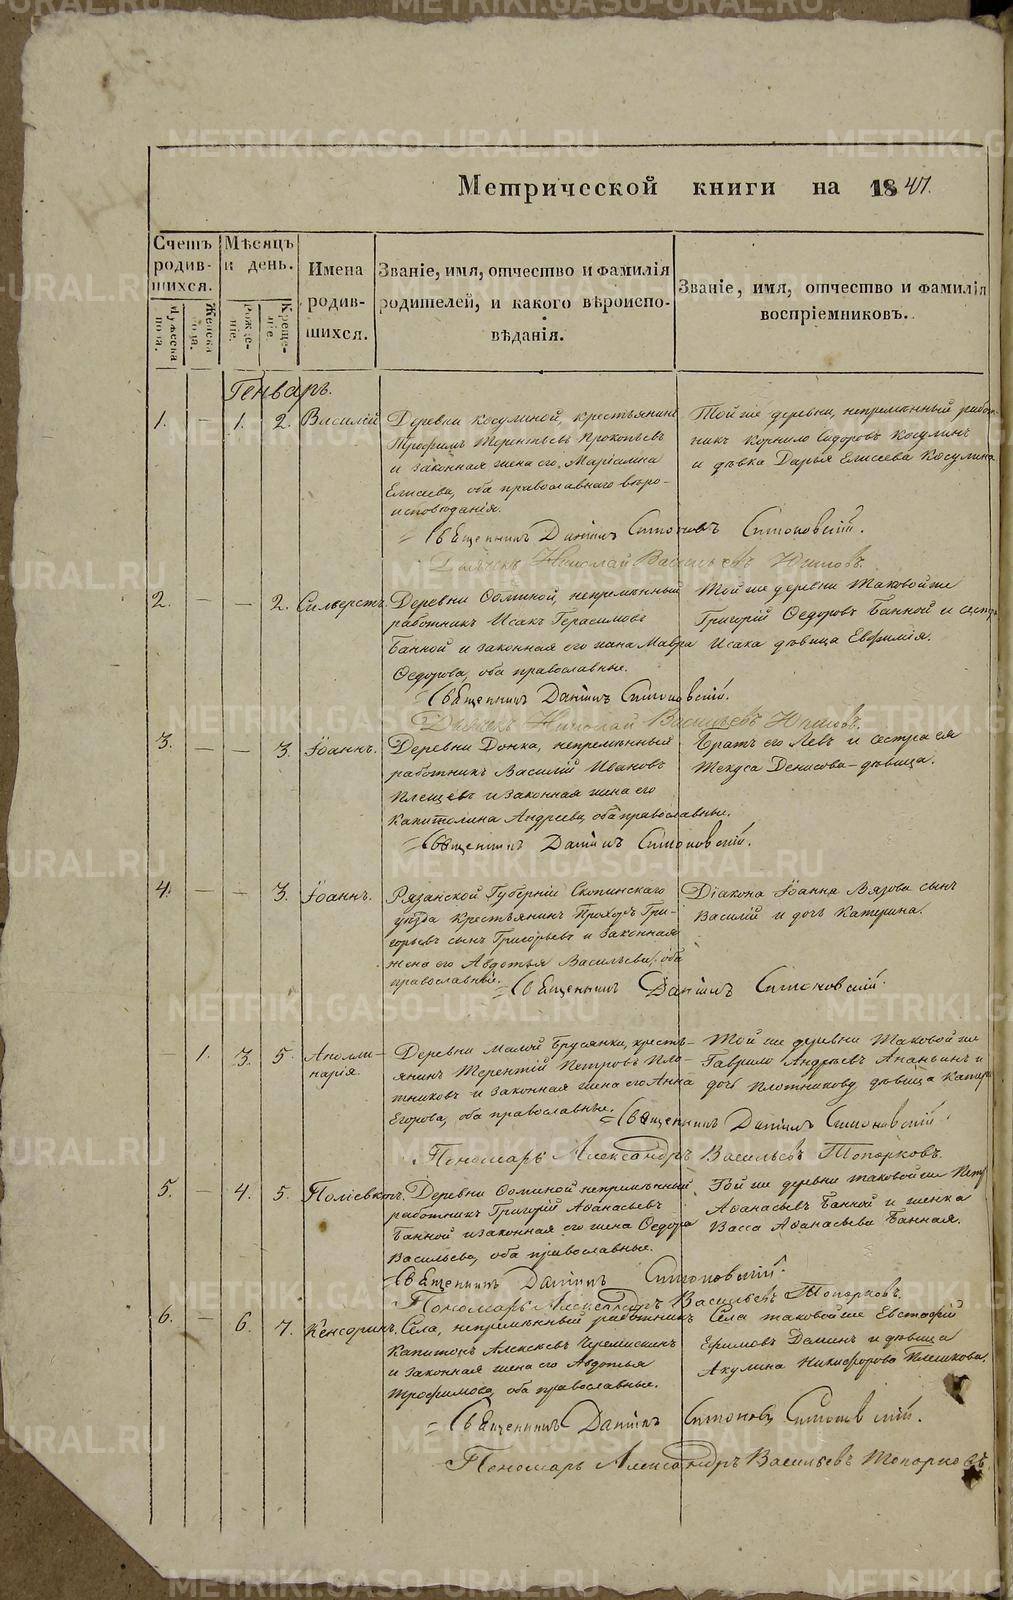 METRIKI.GASO-URAL.RU
Метрической книги на 1847.
Счетъ родившихся.
Мѣсяцъ и день.
Имена родившихся.
Званіе, имя, отчество и фамилія родителей, и какого вѣроисповѣданія.
Званіе, имя, отчество и фамилія воспріемниковъ.
Мужеска пола.
Женска пола.
Рожденіе.
Крещеніе.
Генварь.
1. — 1. 2. Василій
Деревни Косулиной, крестьянинъ
Трофимъ Терентьевъ Прокопьевъ
и законная жена его, Маріамна
Елисеева, оба православнаго вѣро-
исповѣданія.
Той же деревни, непремѣнный работ-
никъ Корнило Сидоровъ Косулинъ
и дѣвка Дарья Елисеева Косулина
Священникъ Даніилъ Симоновъ Симоновскій.
Дьячекъ Николай Васильевъ
2. — — 2. Сильверстъ.
Деревни Фоминой, непремѣнный
работникъ Исакъ Герасимовъ
Банной и законная его жена Мавра
Ѳедорова, оба православные.
Той же деревни таковой же
Григорій Ѳедоровъ Банной и сестра
Исака дѣвица Евфимія.
Священникъ Даніилъ Симоновскій.
Дьячекъ Николай Васильевъ
3. — — 3. Іоаннъ.
Деревни Донка, непремѣнный
работникъ Василій Ивановъ
Плещевъ и законная жена его
Капитолина Андреева, оба православные.
Братъ его Левъ и сестра ея
Текуса Денисова – дѣвица.
Священникъ Даніилъ Симоновскій.
4. — — 3. Іоаннъ.
Рязанской Губерніи Скопинскаго
уѣзда крестьянинъ Прохоръ Гри-
горьевъ сынъ Григорьевъ и законная
жена его Авдотья Васильева, оба
православные.
Діакона Іоанна Вязова сынъ
Василій и дочь Катерина.
Священникъ Даніилъ Симоновскій.
— 1. 3. 5. Аполли-
нарія.
Деревни Малой Брусянки, кресть-
янинъ Терентій Петровъ Пло-
тниковъ и законная жена его Анна
Егорова, оба православные.
Той же деревни таковой же
Гаврило Андреевъ Ананьинъ и
дочь Плотникову, дѣвица Катер
Священникъ Даніилъ Симоновскій.
Пономарь Александръ Васильевъ Топорковъ.
5. — 4. 5. Поліевктъ.
Деревни Фоминой непремѣнный
работникъ Григорій Аѳанасьевъ
Банной и законная его жена Ѳедора
Васильева, оба православные.
Той же деревни таковой же Петр
Аѳанасьевъ Банной и женка
Васса Аѳанасьева Банная.
Священникъ Даніилъ Симоновскій.
Пономарь Александръ Васильевъ Топорковъ.
6. — 6. 7. Кенсоринъ.
Села, непремѣнный работникъ
Капитонъ Алексѣевъ Черемискинъ
и законная жена его Авдотья
Трофимова, оба православные.
Села таковой же Евстафій
Ефимовъ Доминъ и дѣвица
Акулина Никифорова Плешкова.
Священникъ Даніилъ Симоновъ Симоновскій.
Пономарь Александръ Васильевъ Топорковъ.